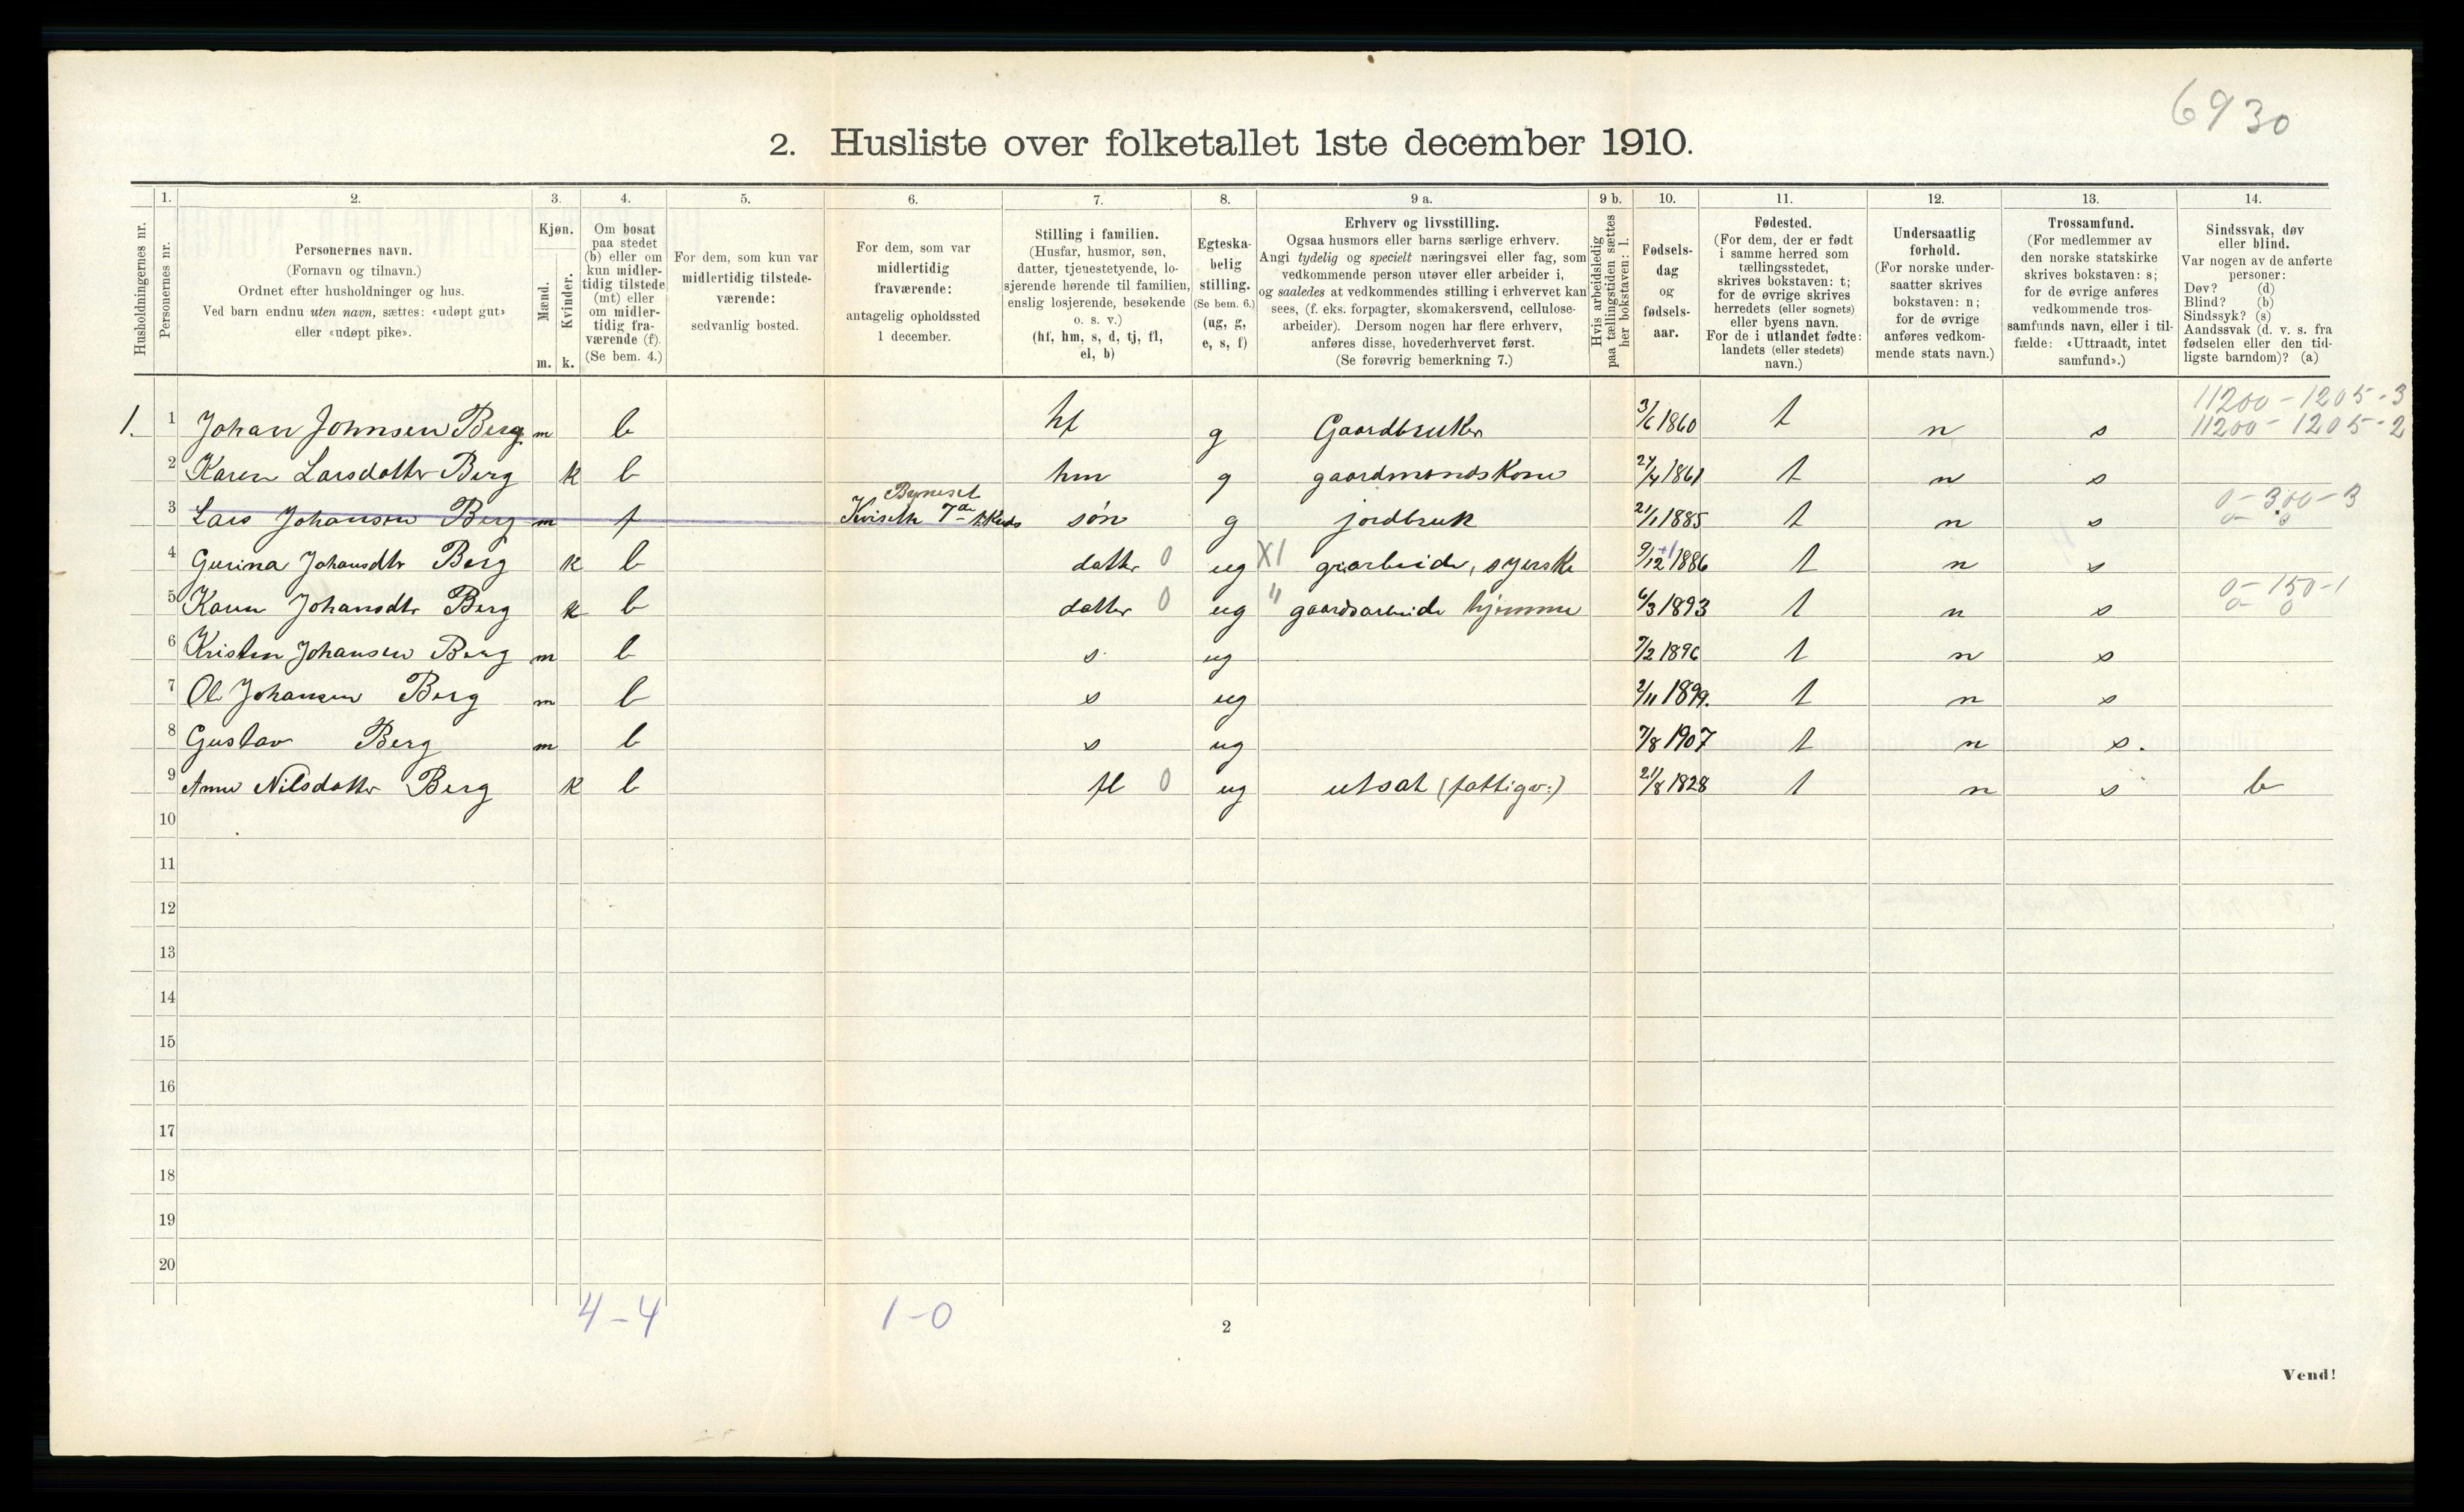 6930
2. Husliste over folketallet 1ste december 1910.
Husholdningernes nr.
1.
Personernes nr.
2.
Personernes navn.
(Fornavn og tilnavn.)
Ordnet efter husholdninger og hus.
Ved barn endnu uten navn, sættes: «udøpt gut»
eller «udøpt pike».
3.
Kjøn.
Mænd.
Kvinder.
m. k.
4.
Om bosat
paa stedet
(b) eller om
kun midler-
tidig tilstede
(mt) eller
om midler-
tidig fra-
værende (f).
(Se bem. 4.)
5.
For dem, som kun var
midlertidig tilstede-
værende:
sedvanlig bosted.
6.
For dem, som var
midlertidig
fraværende:
antagelig opholdssted
1 december.
7.
Stilling i familien.
(Husfar, husmor, søn,
datter, tjenestetyende, lo-
sjerende hørende til familien,
enslig losjerende, besøkende
o. s. v.)
(hf, hm, s, d, tj, fl,
el, b)
8.
Egteska-
belig
stilling.
(Se bem. 6.)
(ug, g,
e, s, f)
9 a.
Erhverv og livsstilling.
Ogsaa husmors eller barns særlige erhverv.
Angi tydelig og specielt næringsvei eller fag, som
vedkommende person utøver eller arbeider i,
og saaledes at vedkommendes stilling i erhvervet kan
sees, (f. eks. forpagter, skomakersvend, cellulose-
arbeider). Dersom nogen har flere erhverv,
anføres disse, hovederhvervet først.
(Se forøvrig bemerkning 7.)
9 b.
Hvis arbeidsledig
paa tællingstiden sættes
her bokstaven: l.
10.
Fødsels-
dag
og
fødsels-
aar.
11.
Fødested.
(For dem, der er født
i samme herred som
tællingsstedet,
skrives bokstaven: t;
for de øvrige skrives
herredets (eller sognets)
eller byens navn.
For de i utlandet fødte:
landets (eller stedets)
navn.)
12.
Undersaatlig
forhold.
(For norske under-
saatter skrives
bokstaven: n;
for de øvrige
anføres vedkom-
mende stats navn.)
13.
Trossamfund.
(For medlemmer av
den norske statskirke
skrives bokstaven: s;
for de øvrige anføres
vedkommende tros-
samfunds navn, eller i til-
fælde: «Uttraadt, intet
samfund».)
14.
Sindssvak, døv
eller blind.
Var nogen av de anførte
personer:
Døv? (d)
Blind? (b)
Sindssyk? (s)
Aandssvak (d. v. s. fra
fødselen eller den tid-
ligste barndom)? (a)
11200 - 1205 - 3
1. 1 Johan Johnsen Berg m b hf g Gaardbruker 3/6 1860 t n s 11200 - 1205 - 2
2 Karen Larsdatter Berg k b hm g gaardmandskone 24/4 1861 t n s
Byneset
3 Lars Johansen Berg m f søn g jordbruk 21/1 1885 t n s 0 - 300 - 3
0 - 0
4 Gurina Johansdtr Berg k b datter 0 ug X1 grarbeide, syerske 9/12 1886 t n s
5 Karen Johansdtr Berg k b datter 0 ug " gaardsarbeide hjemme 6/3 1893 t n s 0 - 150 - 1
0 - 0
6 Kristen Johansen Berg m b s ug 7/2 1896 t n s
7 Ol Johansen Berg m b s ug 2/11 1899. t n s
8 Gustav Berg m b s ug 7/8 1907 t n s.
9 Anne Nilsdatter Berg k b fl 0 ug utsat (fattigv:) 21/8 1828 t n s b
10
11
12
13
14
15
16
17
18
19
20
4 - 4 1 - 0
2
Vend!